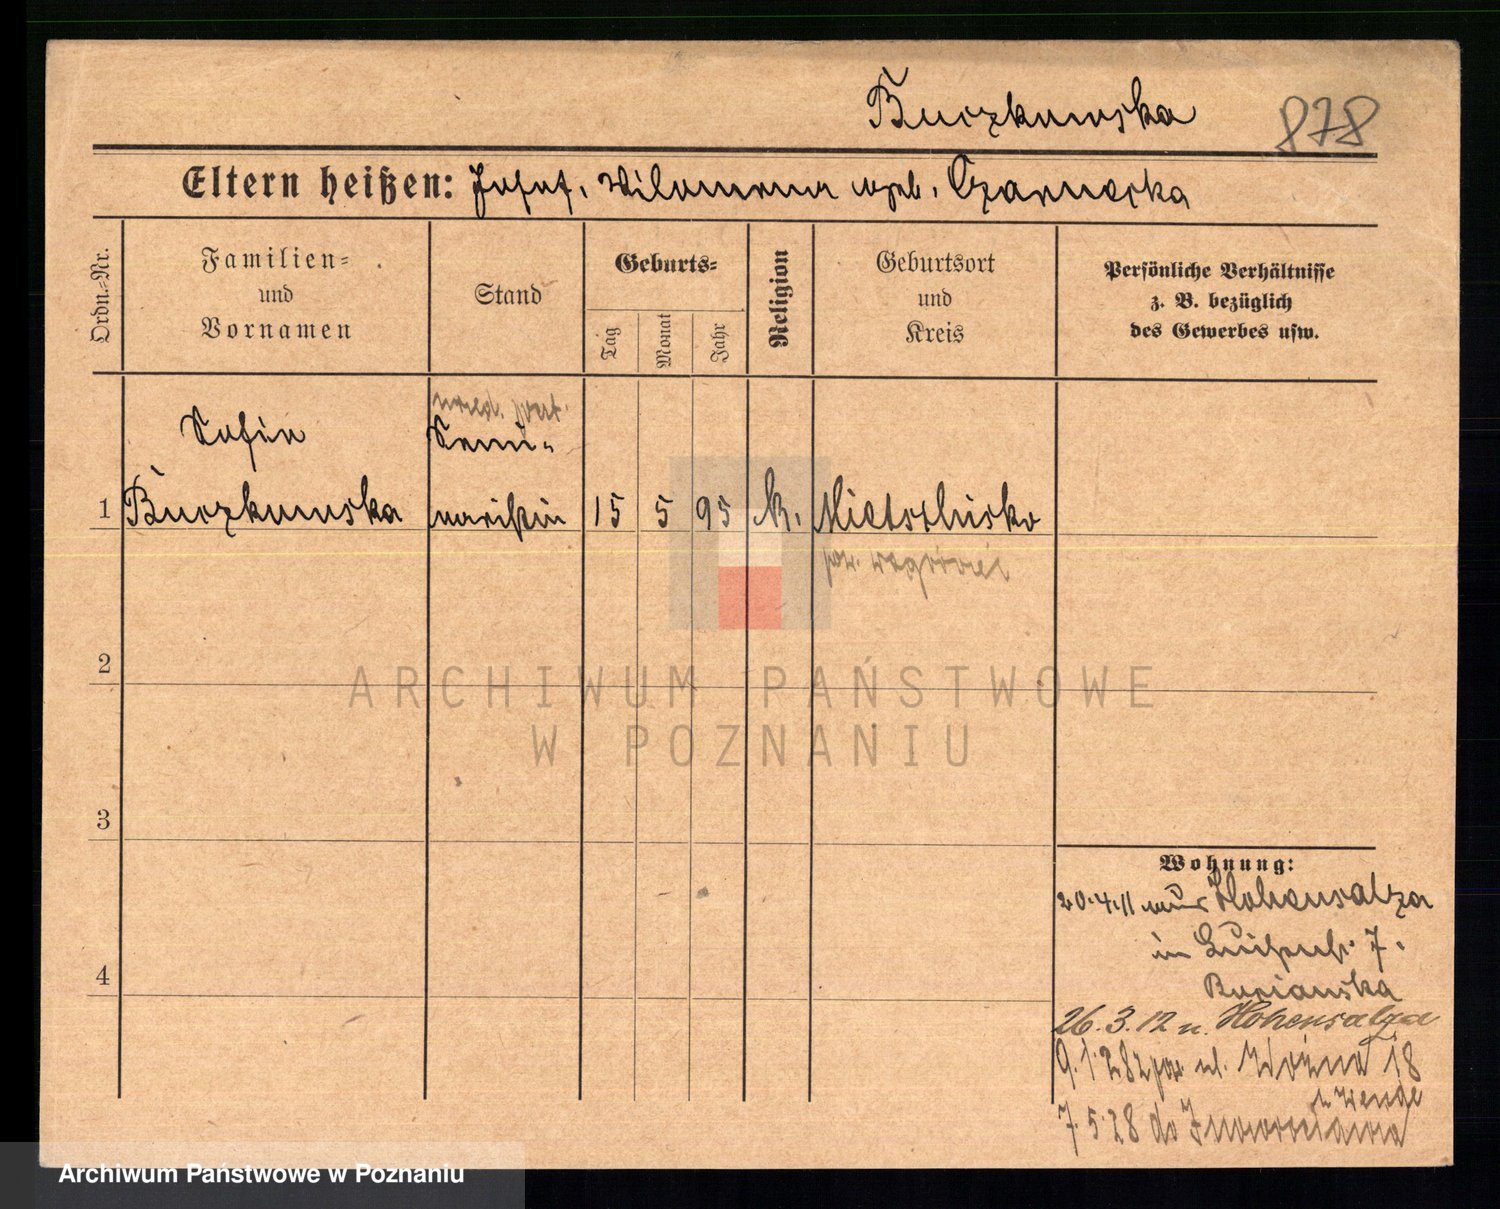 Buczkowska 878
Eltern heißen: Josef, Filomena geb. Czarnecka
Ordn.-Nr.
Familien-
und
Vornamen
Stand
Geburts-
Tag
Monat
Jahr
Religion
Geburtsort
und
Kreis
Persönliche Verhältnisse
z. B. bezüglich
des Gewerbes usw.
Sofia
Semi-
1 Buczkowska naristin 15 5 95 k. Mietschisko
pow.
2
ARCHIWUM PAŃSTWOWE
W POZNANIU
3
4
Wohnung:
20.4.11 aus Hohensalza
in 7.
26.3.12 n. Hohensalza
9.1.28 z ul. Woźna 18
7.5.28 do Inowrocławia
Archiwum Państwowe w Poznaniu